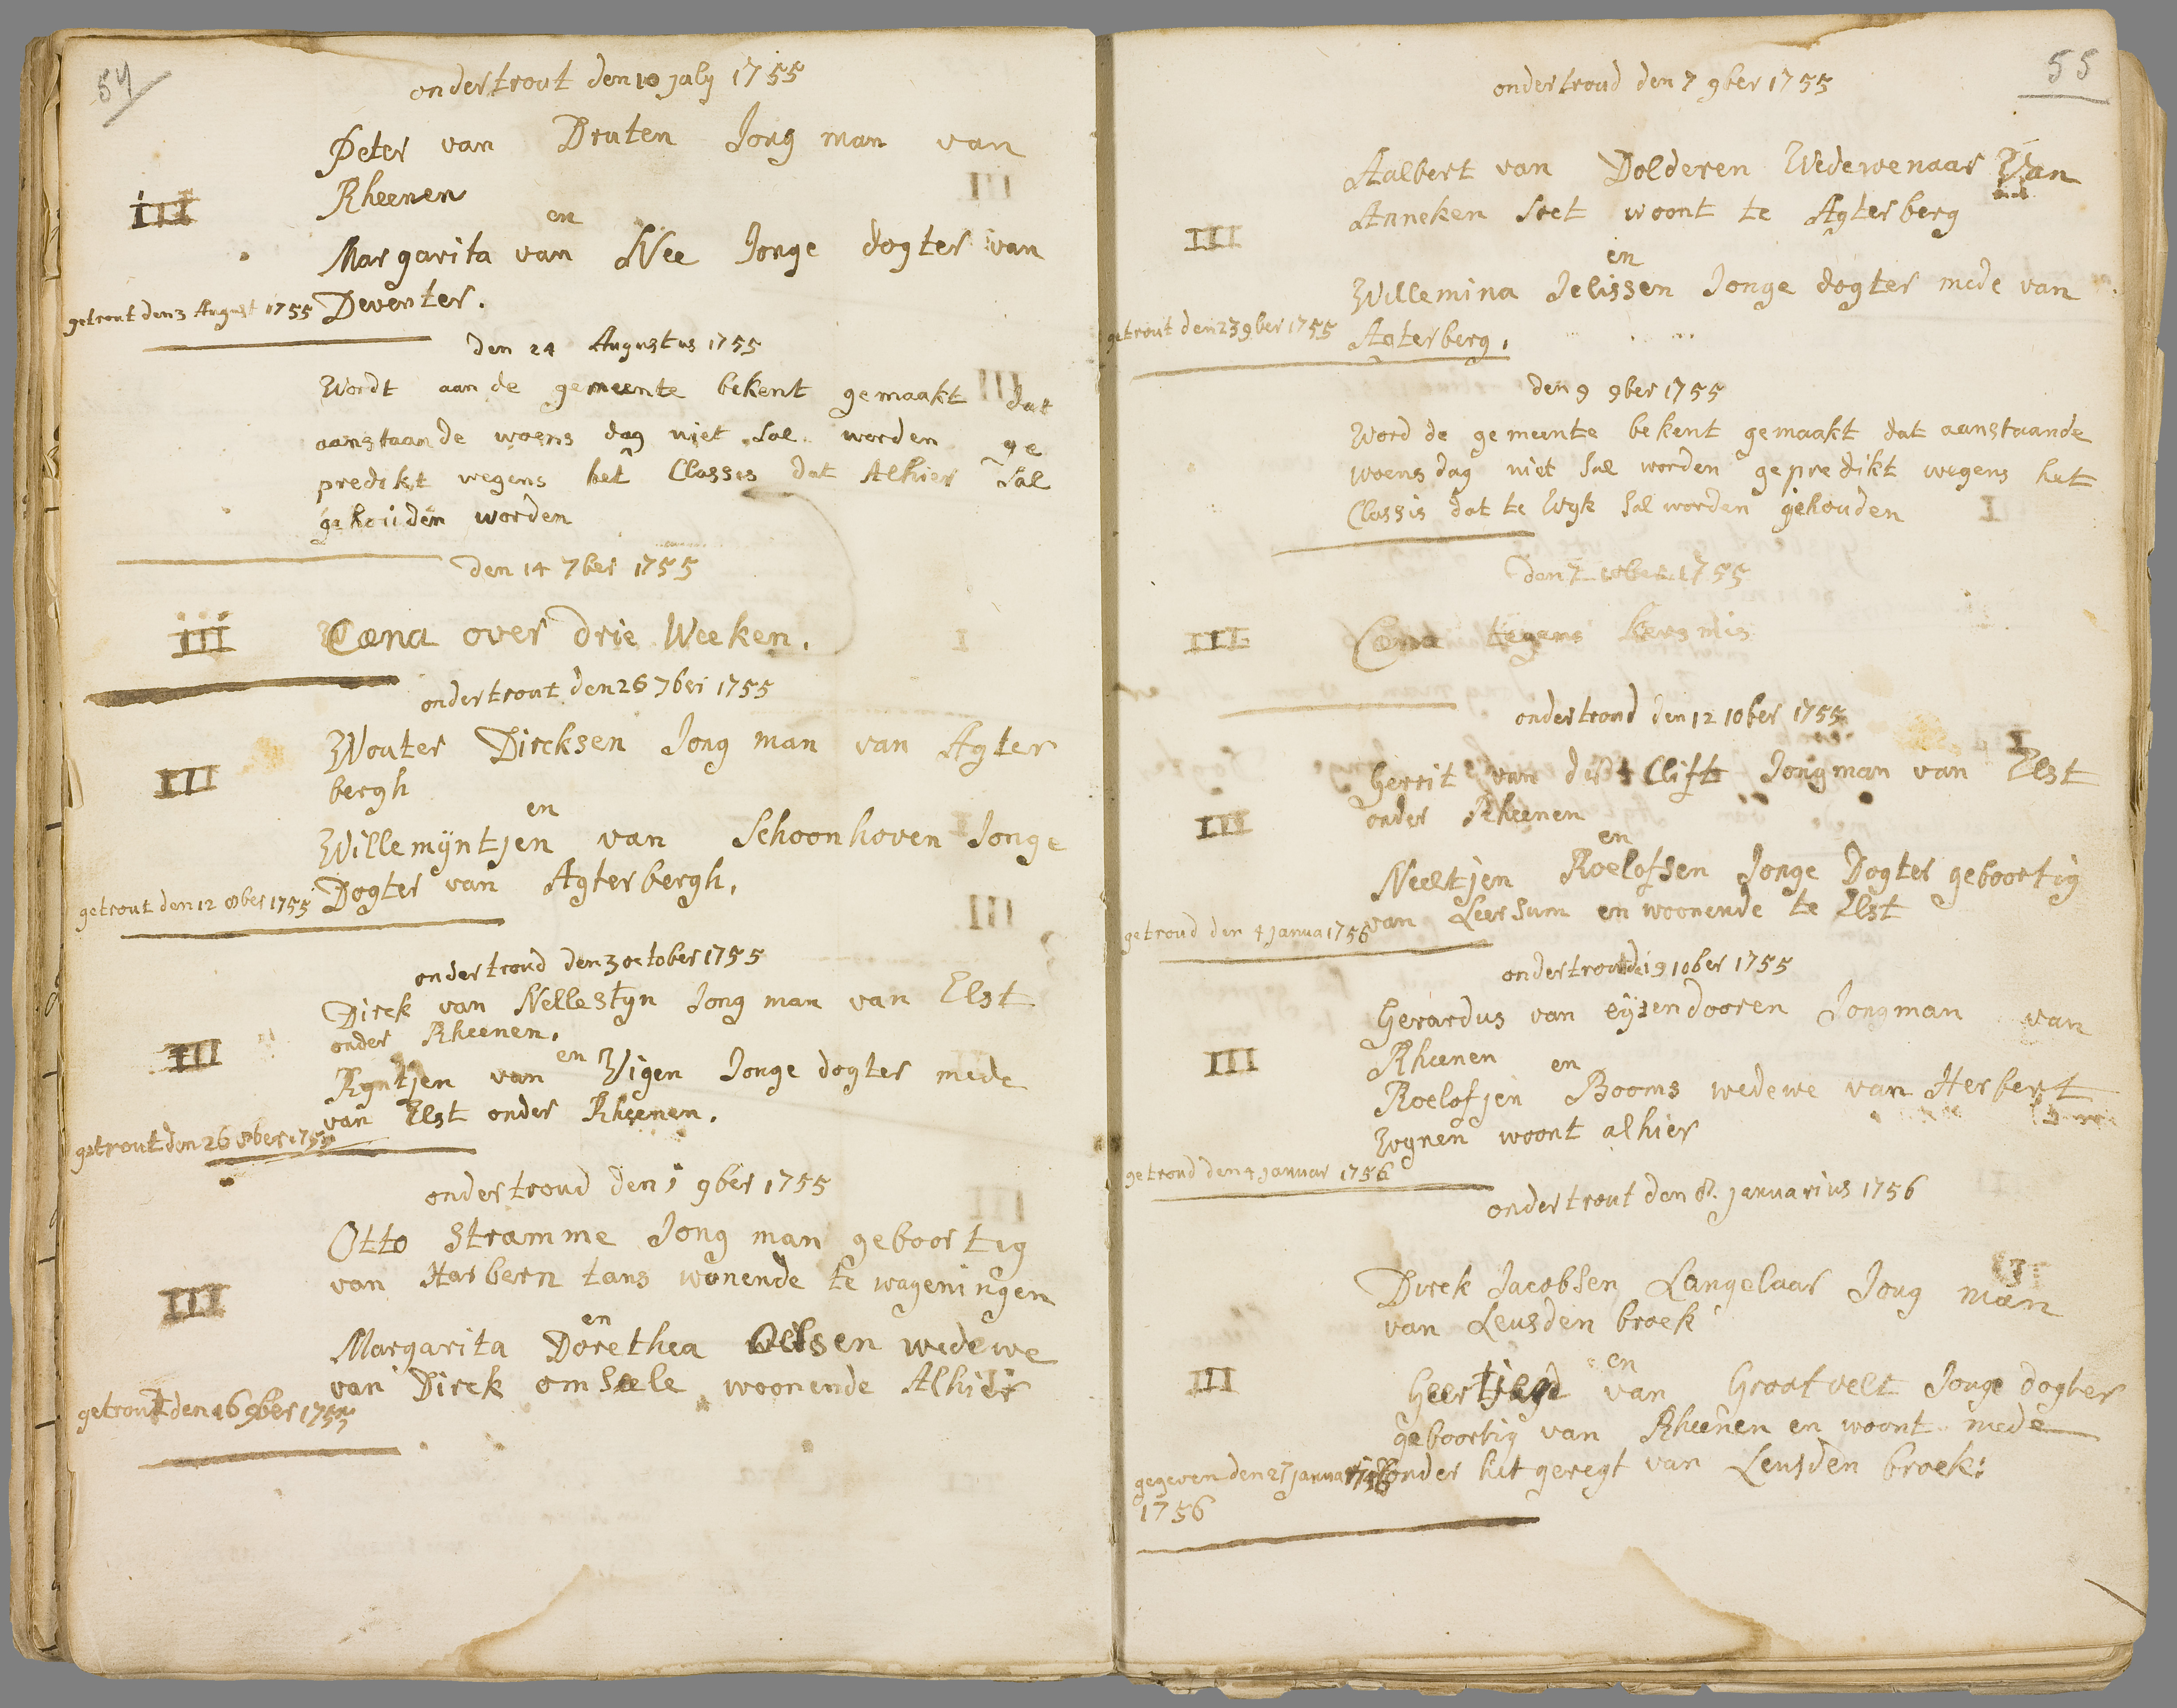 54
ondertrout den 10 july 1755
Peter van Druten Jong man van
Rheenen
III
en
Margarita van Nee Jonge dogter van
getrout den 3 August 1755 Deventer.
den 24 Augustus 1755
Wordt aan de gemeente bekent gemaakt dat
aanstaande woens dag niet sal worden ge
predikt wegens het Classis dat Alhier sal
gehouden worden
den 14 7ber 1755
III Cœna over drie Weeken.
ondertrout den 26 7ber 1755
Wouter Dircksen Jong man van Agter
III
bergh
en
Willemÿntjen van Schoonhoven Jonge
getrout den 12 8ber 1755 Dogter van Agterbergh.
ondertroud den 3 october 1755
Dirck van Nellestyn Jong man van Elst
onder Rheenen.
III
en
Ryntjen van Wigen Jonge dogter mede
van Elst onder Rheenen.
getrout den 26 8ber 1755
ondertroud den 1 9ber 1755
Otto Stramme Jong man geboortig
van Harbern tans wonende te wageningen
III
en
Margarita Dorethea Oelsen wedewe
van Dirck omsæle woonende Alhier
getrout den 16 9ber 1755
55
ondertroud den 7 9ber 1755
Aalbert van Dolderen Wedewenaar Van
Anneken Soet woont te Agterberg
III
en
Willemina Jelissen Jonge dogter mede van
getrout den 23 9ber 1755 Agterberg.
den 9 9ber 1755
Word de gemeente bekent gemaakt dat aanstaande
woensdag niet sal worden gepredikt wegens het
Classis dat te Wyk sal worden gehouden
den 7 10ber 1755
III Cœna tegens kersmis
ondertroud den 12 10ber 1755
Gerrit van der Clift Jongman van Elst
onder Rheenen
III
en
Neeltjen Roelofsen Jonge Dogter geboortig
van Leersum en woonende te Elst
getroud den 4 Janua 1756
ondertrout de 19 10ber 1755
Gerardus van eÿzendooren Jongman van
Rheenen
III
en
Roelofjen Booms wedewe van Herbert
Wynen woont alhier
getroud den 4 Januar 1756
ondertrout den 8. Januarius 1756
Dirck Jacobsen Langelaar Jong man
van Leusden broek
III
en
Geertjen van Grootvelt Jonge dogter
geboortig van Rheenen en woont mede
gegeven den 27 januari onder het geregt van Leusden broek:
1756